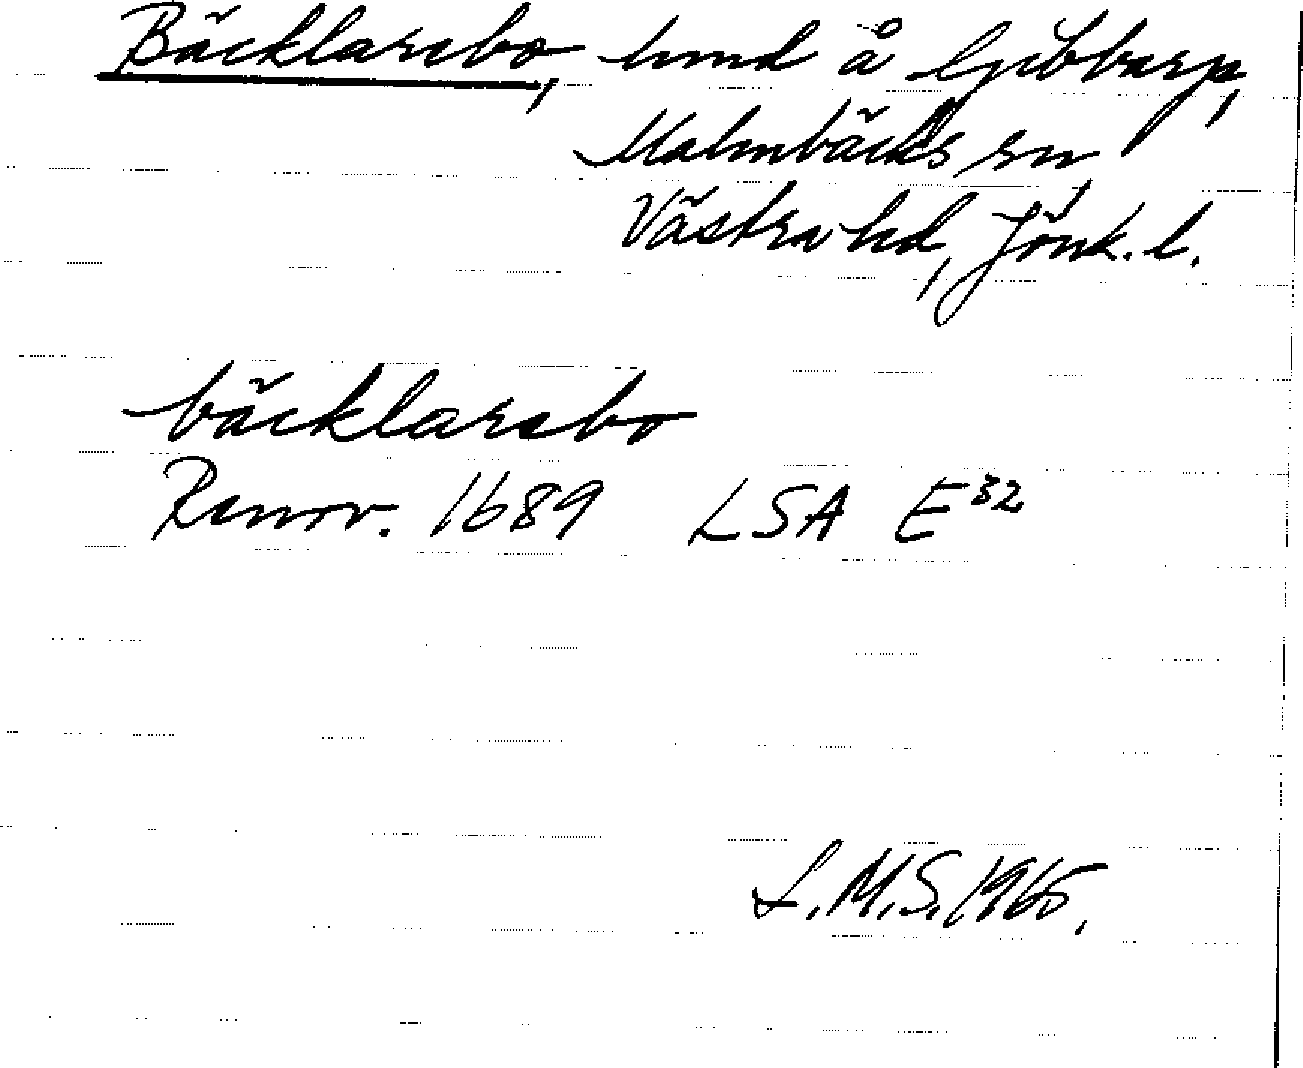 Bäcklarsbo, hmd å Ljibbarp,
Malmbäcks sn
Västra hd, Jönk. l.
bäcklarsbo
Renov. 1689 LSA E32
L.M.S. 1965.